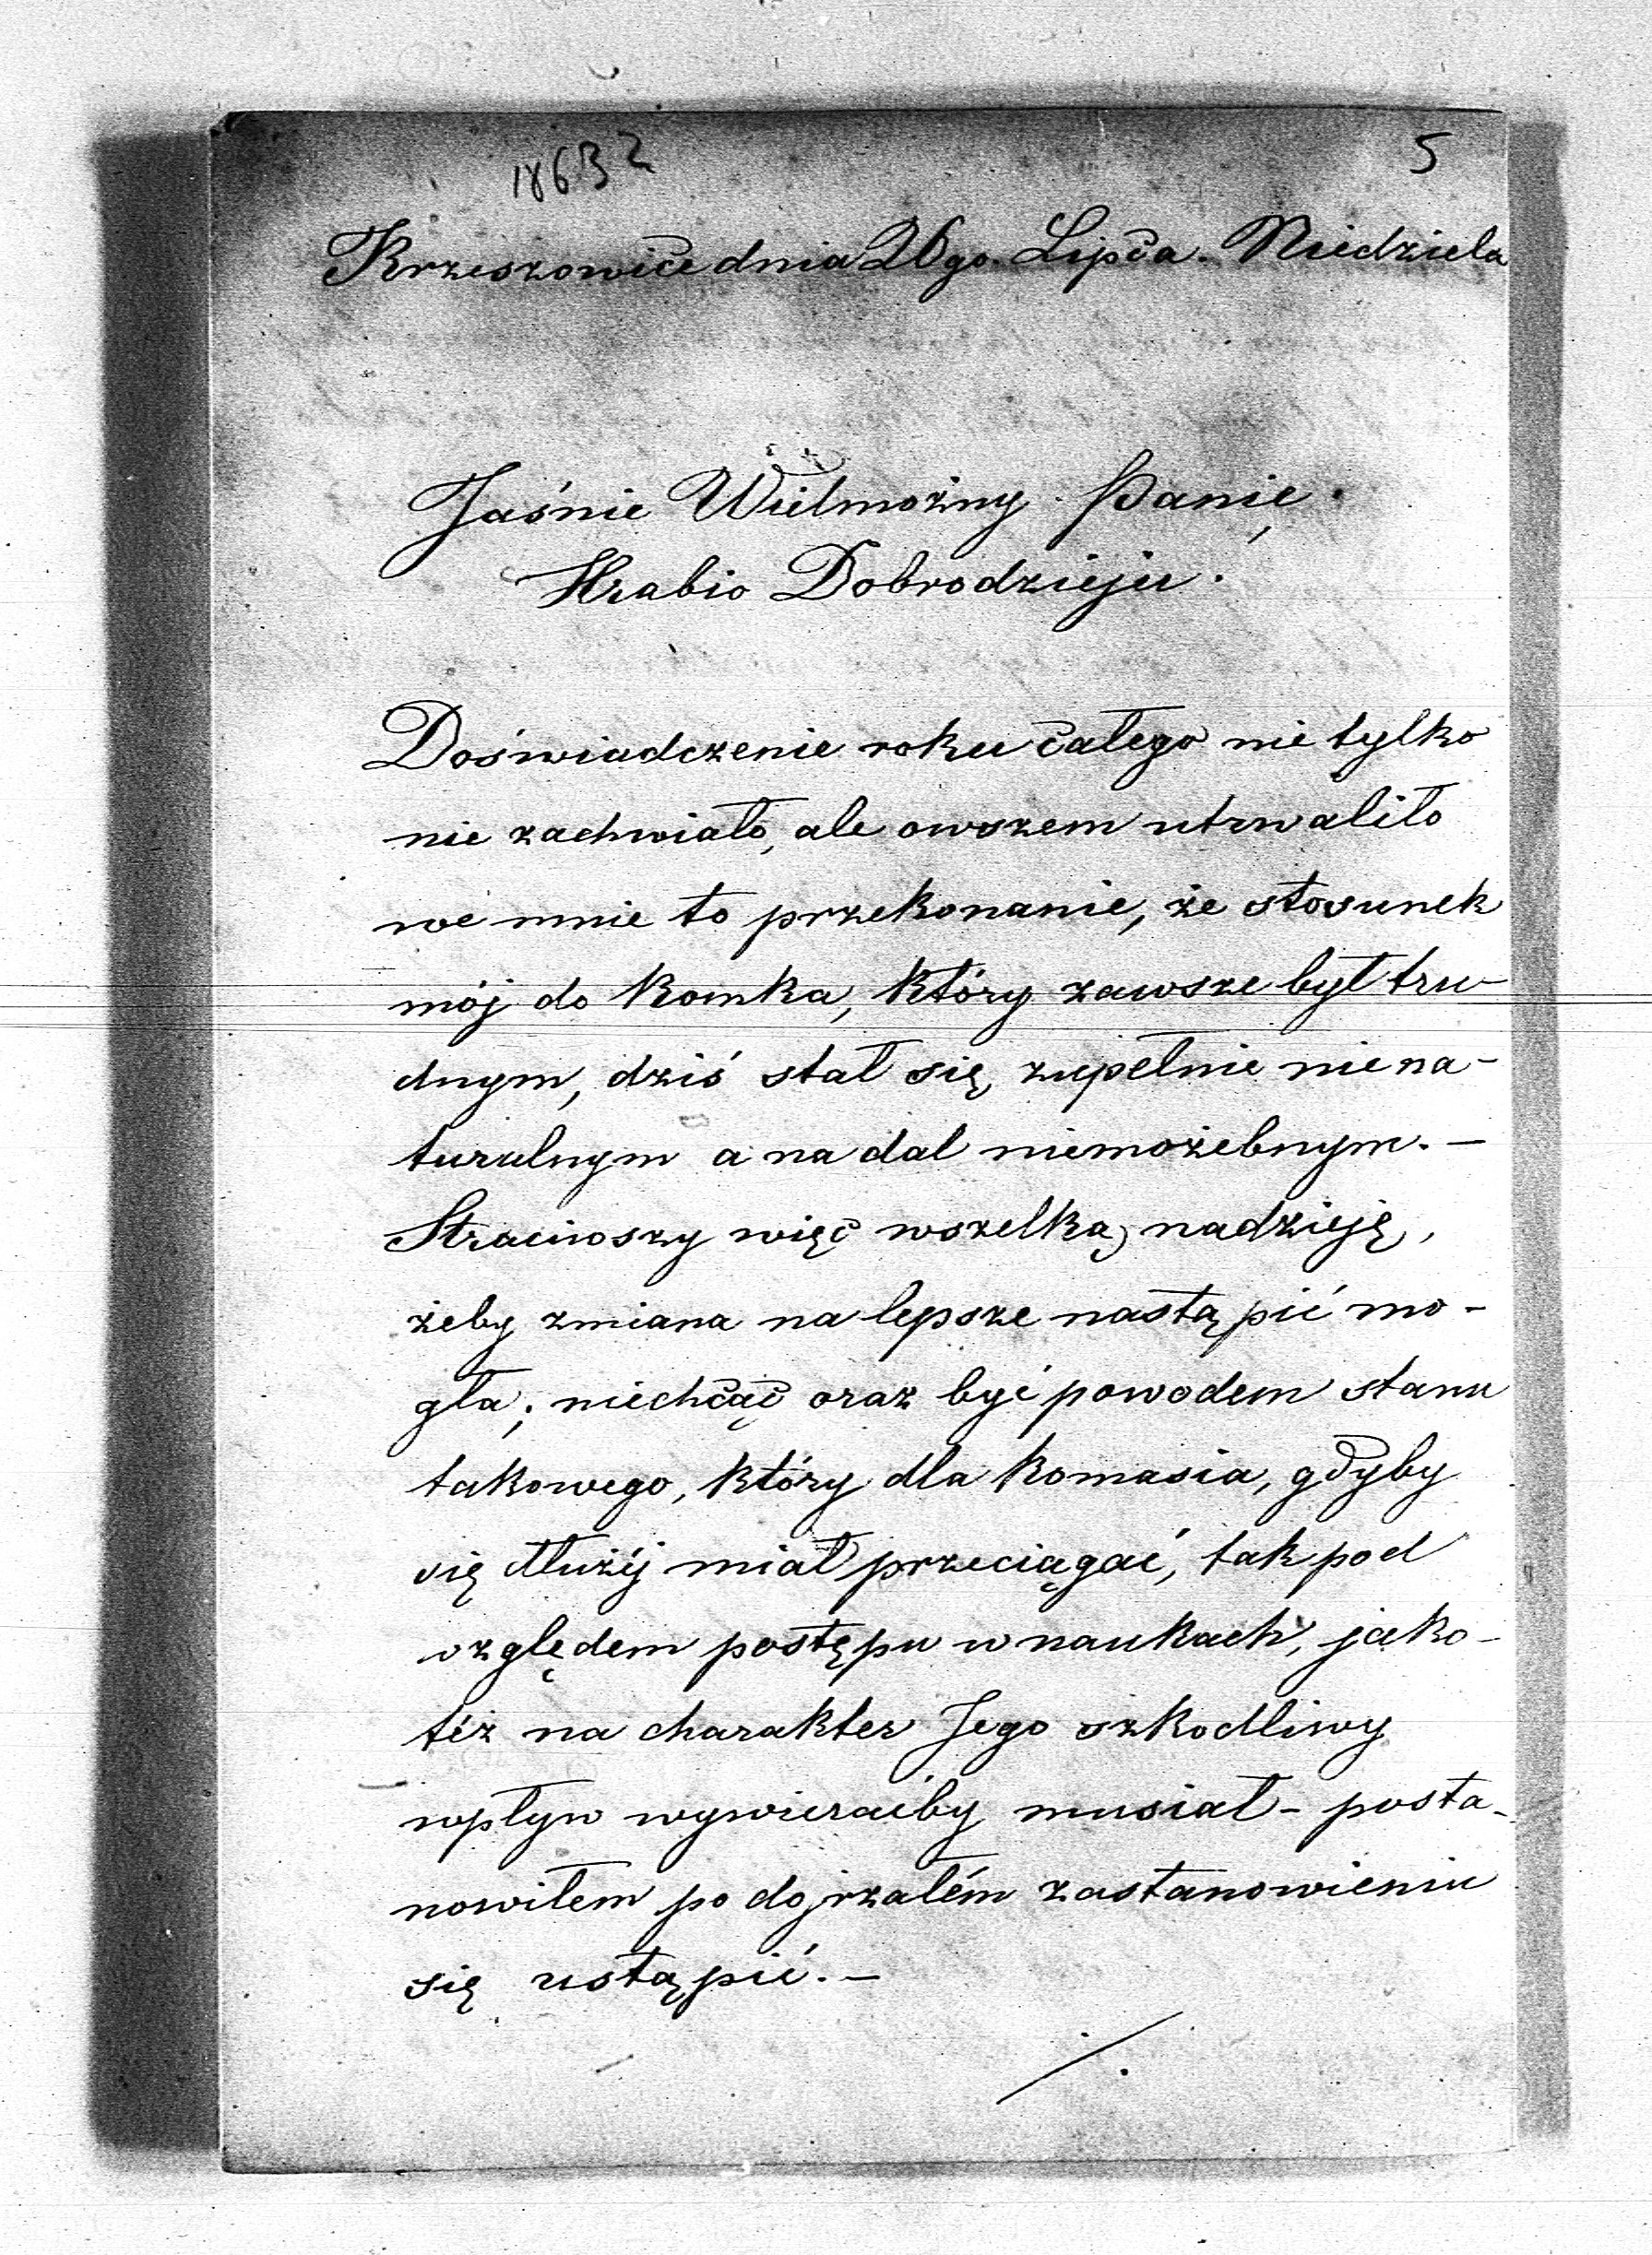 1863 2
5
Krzeszowice dnia 26go. Lipca. Niedziela
Jaśnie Wielmożny Panie.
Hrabio Dobrodzieju.
Doświadczenie roku całego nie tylko
nie zachwiało, ale owszem utrwaliło
we mnie to przekonanie, że stosunek
mój do Romka, który zawsze był tru-
dnym, dziś stał się zupełnie niena-
turalnym a na dal niemożebnym. —
Straciwszy więc wszelką nadzieję,
żeby zmiana na lepsze nastąpić mo-
gła; niechcąc oraz być powodem stanu
takowego, który dla Romasia, gdyby
się dłużéj miał przeciągać, tak pod
względem postępu w naukach, jako-
téż na charakter Jego szkodliwy
wpływ wywieraćby musiał — posta-
nowiłem po dojrzałém zastanowieniu
się ustąpić. —
./.